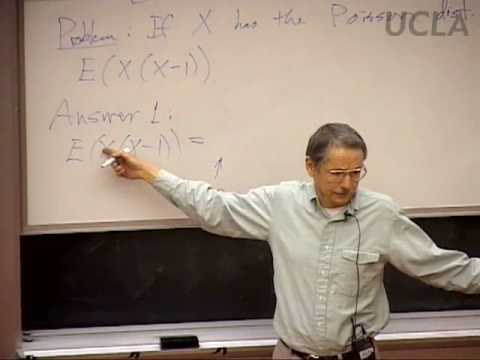 Problem: If X has the Poisson dist.
UCLA
E(X(X-1))
Answer 1:
E(X(X-1)) =